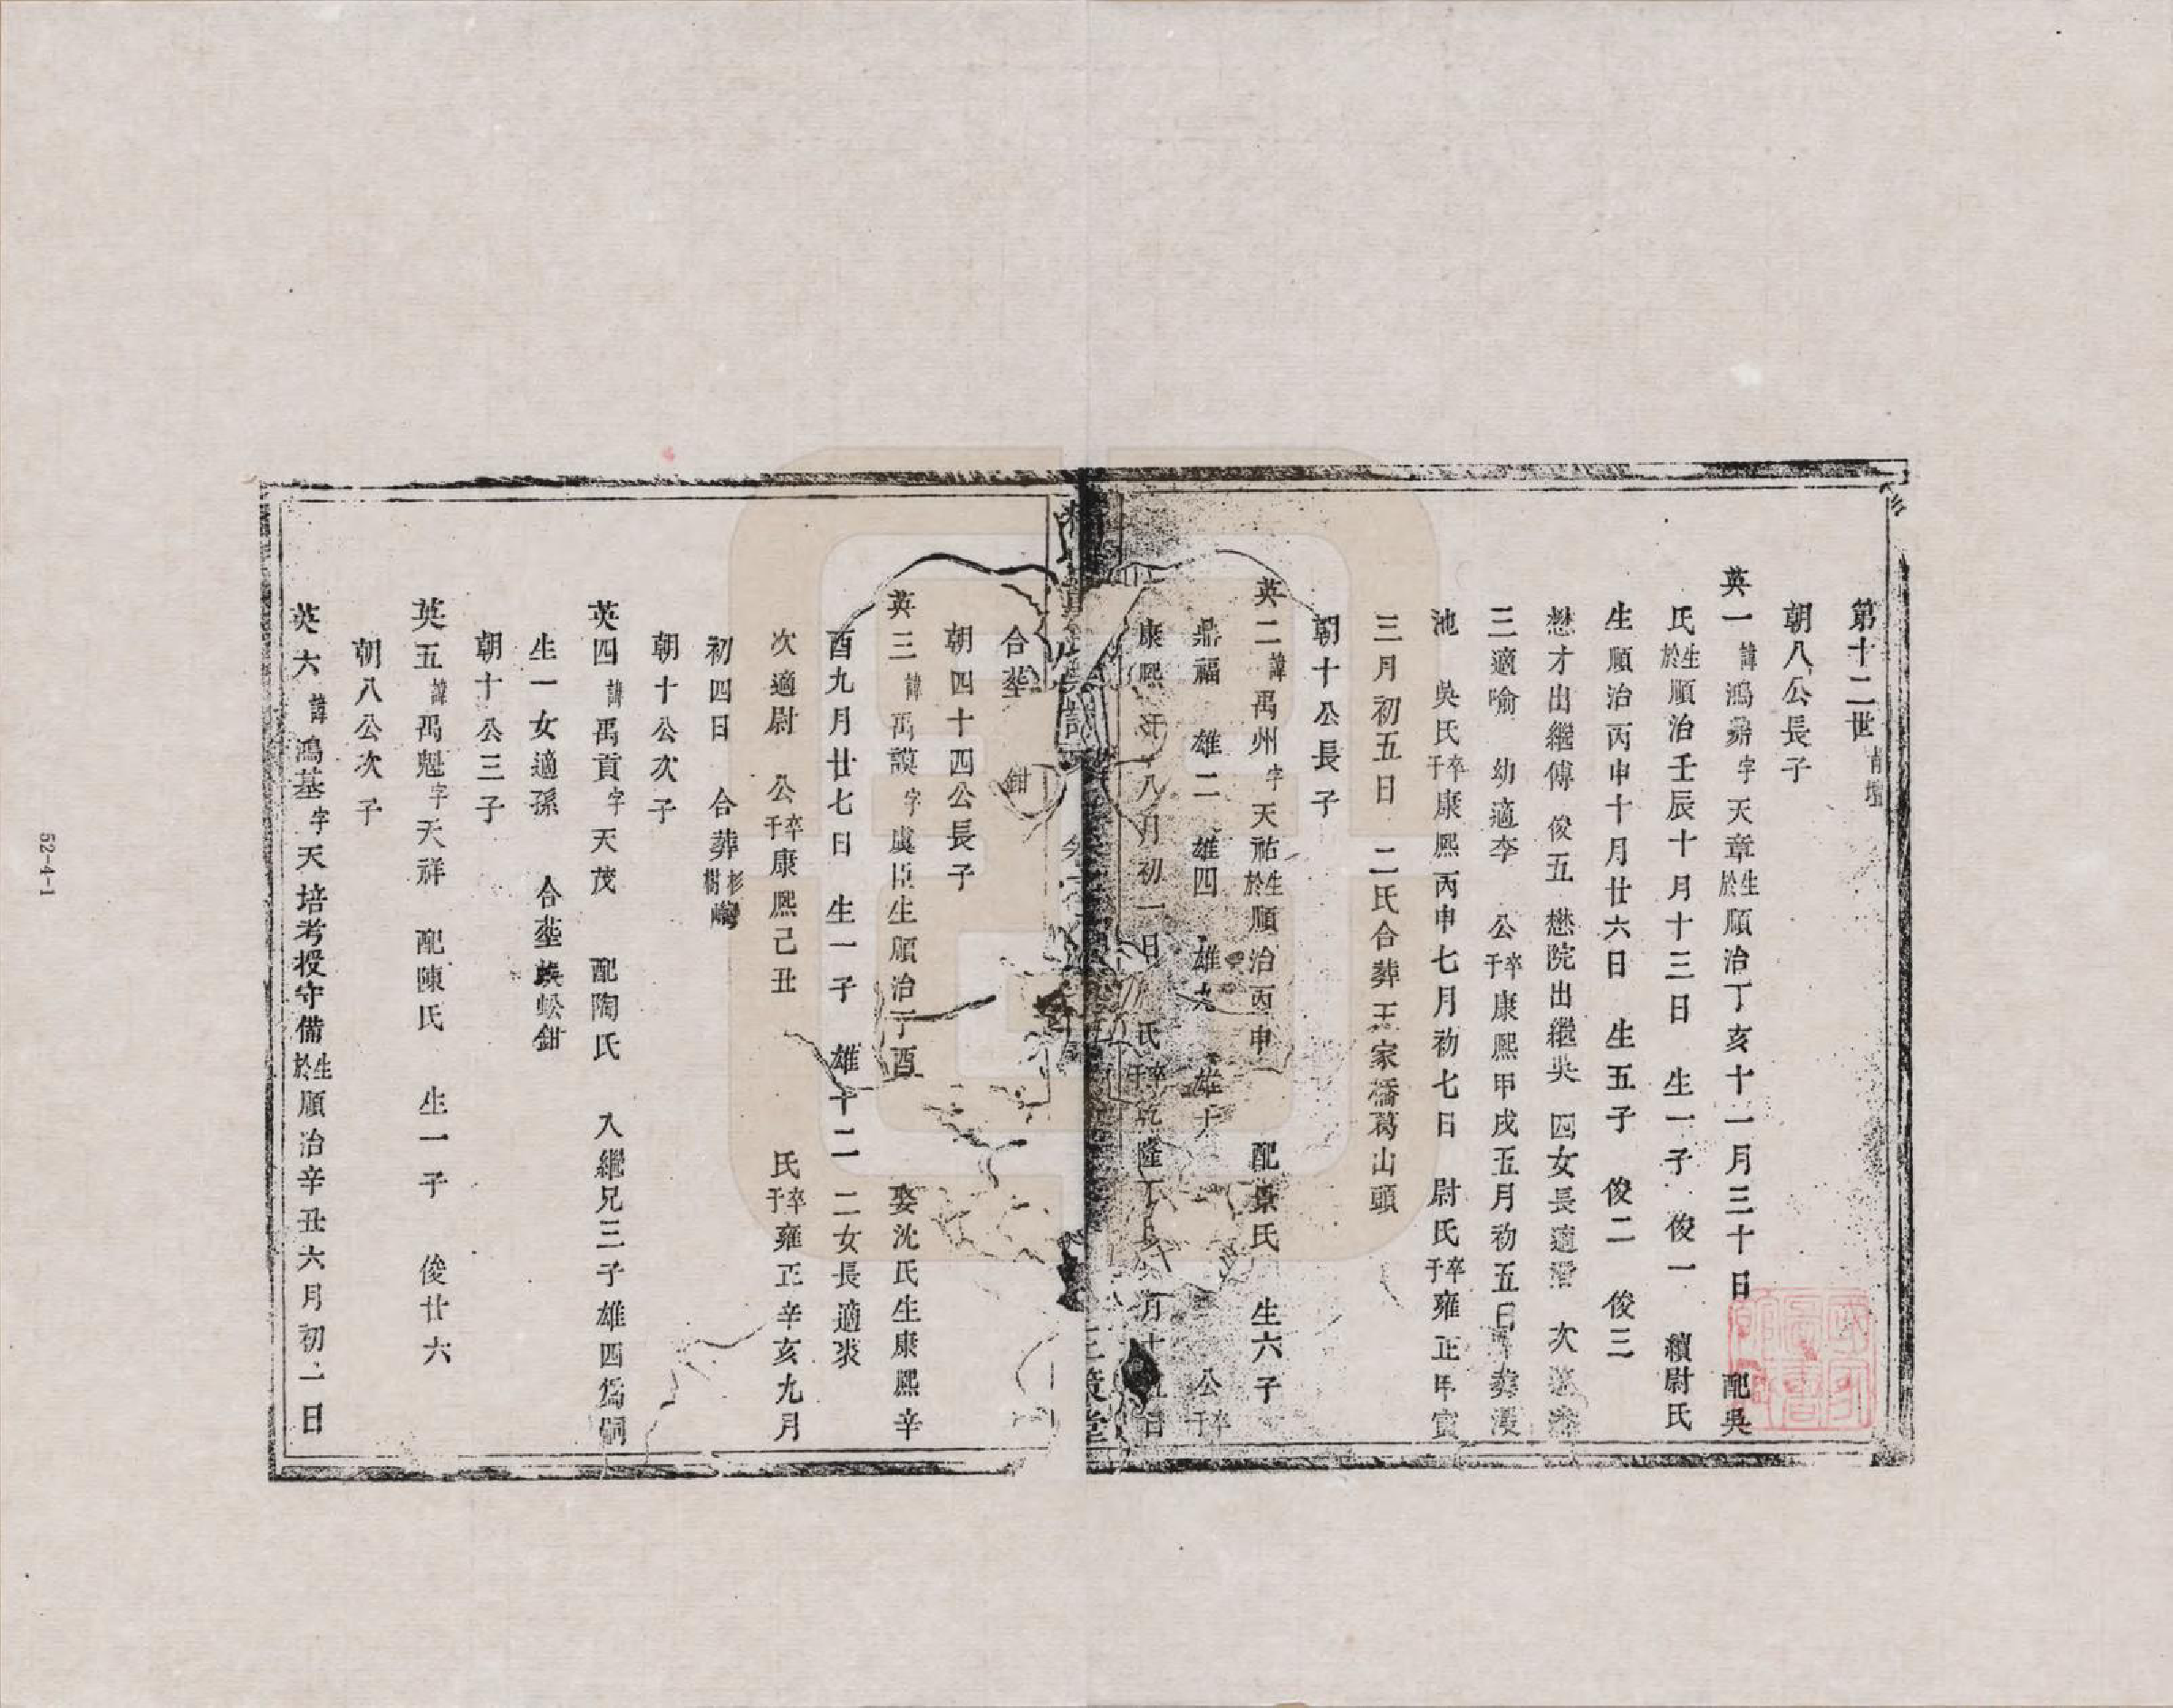 第十二世 青壇
朝八公長子
英一 諱鴻鼐 字天章 生於順治丁亥十一月三十日 配吳
氏 生於順治壬辰十月十三日 生一子 俊一 續尉氏
生順治丙申十月廿六日 生五子 俊二 俊三
懋才出繼傅 俊五 懋院出繼吳 四女長適潘 次適
三適喻 幼適李 公卒于康熙甲戌五月初五日 葬
池 吳氏卒于康熙丙申七月初七日 尉氏卒于雍正甲寅
三月初五日 二氏合葬王家橋葛山頭
朝十公長子
英二 諱禹州 字天祐 生於順治丙申 配景氏 生六子
鼎福 雄二 雄四 雄九 雄十 公卒于
康熙 八月初一日 氏卒于乾隆丁 月十五日
合塟 鉗
朝四十四公長子
英三 諱禹謨 字虞臣 生順治丁酉 娶沈氏生康熙辛
酉九月廿七日 生一子 雄十二 二女長適裘
次適尉 公卒于康熙己丑 氏卒于雍正辛亥九月
初四日 合葬杉樹
朝十公次子
英四 諱禹貢 字天茂 配陶氏 入繼兄三子雄四為嗣
生一女適孫 合塟蜈蚣鉗
朝十公三子
英五 諱禹魁 字天祥 配陳氏 生一子 俊廿六
朝八公次子
英六 諱鴻基 字天培 考授守備 生於順治辛丑六月初二日
52-4-1